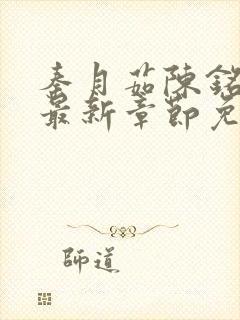 秦月茹陳銘
最新章節免
師道